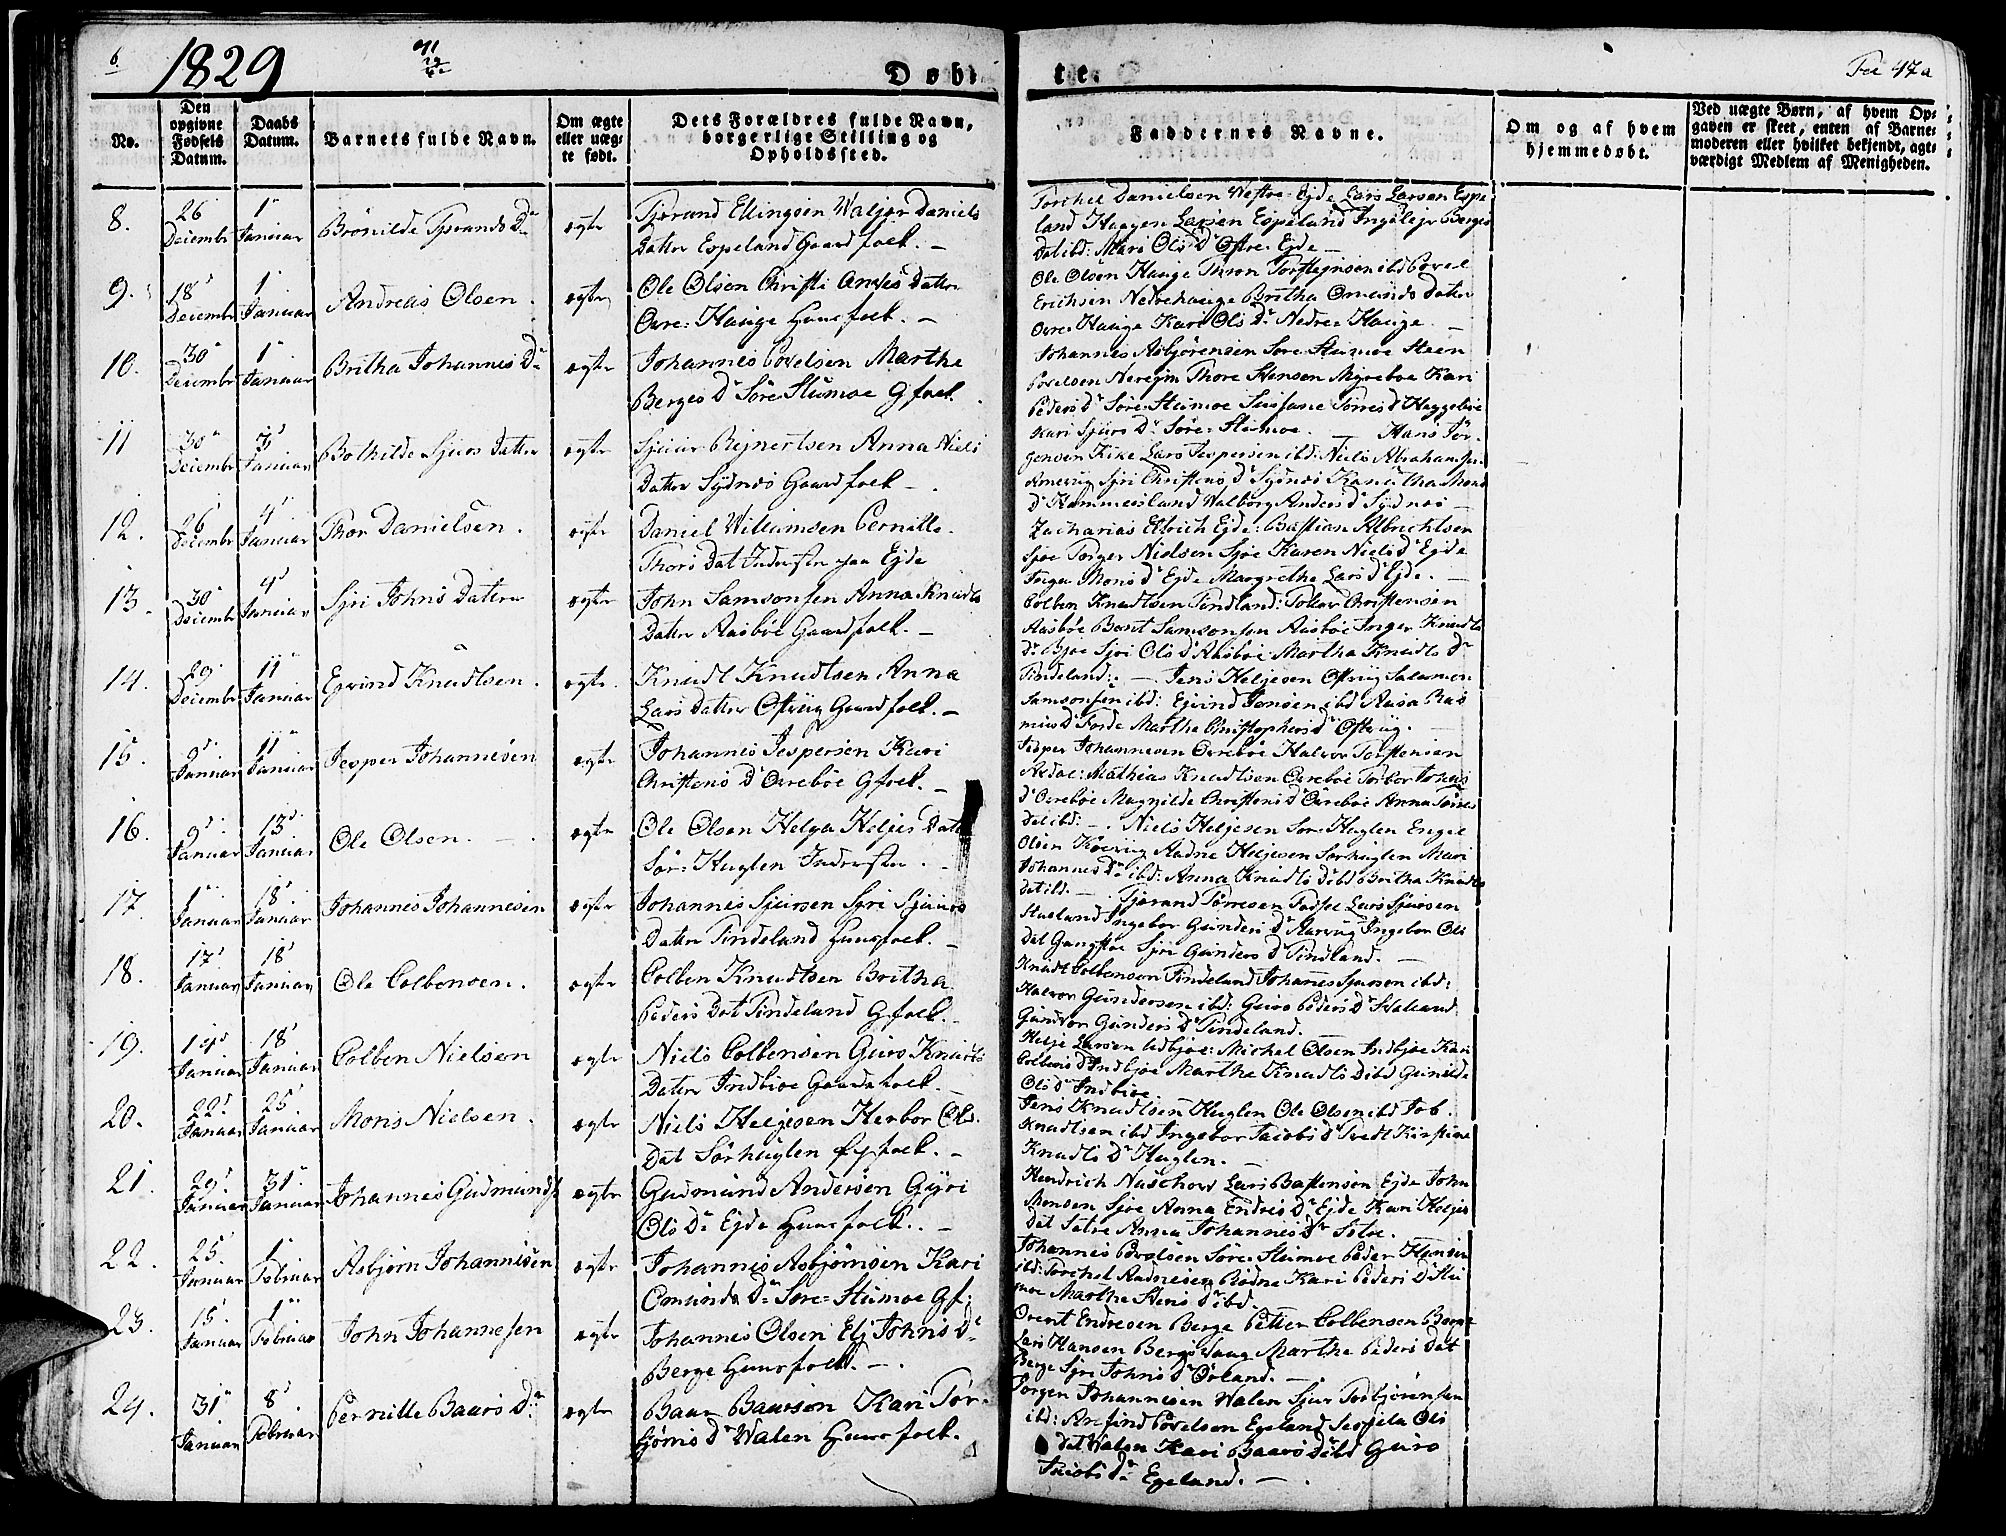 6.
1829
Døbte.
Fol 47 a
No.
Den opgivne Fødsels Datum.
Daabs Datum.
Barnets fulde Navn.
Om ægte eller uægte født.
Dets Forældres fulde Navn, borgerlige Stilling og Opholdssted.
Faddernes Navne.
Om og af hvem hjemmedøbt.
Ved uægte Børn, af hvem Opgaven er skeet, enten af Barnemoderen eller hvilket bekjendt, agtværdigt Medlem af Menigheden.
8. 26 Decembr 1 Januar Brønilde Tjerands Dr ægte Tjerand Ellingsen Waljer Daniels
Datter Espeland Gaardfolk. —
Torchel Danielsen Westre Ejde Lars Larsen Espe
land Haagen Larsen Espeland Ingelejv Berges
Dat ibd: Mari Ols D Østre Ejde —
9. 18 Decembr 1 Januar Andreas Olsen. ægte Ole Olsen Christi Anders Datter
Øvre Hauge Huusfolk. —
Ole Olsen Hauge Thron Torstejnsen ibd Povel
Erichsen Nedrehauge Britha Omunds Datter
Øvre Hauge Kari Ols Dr Nedre Hauge. —
10. 30 Decembr 1 Januar Britha Johannes Dr ægte Johannes Povelsen Marthe
Berges D Søre Stumoe Gfolk.
Johannes Asbjørensen Søre Stumoe Steen
Povelsen Neregin Thore Stensen Myreboe Kari
Peders D Søre Stumoe Susanne Torres D Heggeboe
Kari Sjurs D Søre Stumoe. —
11 30 Decembr 3 Januar Bothilde Sjurs Datter ægte Sjuur Rejnertsen Anna Niels
Datter Sydnes Gaardfolk —
Hans Jør-
gensen Kike Lars Jespersen ibd: Niels Abrahamsen
Amerug Sjri Christens D Sydnes Kanutha Mons
D Hammersland Walborg Anders D Sydnes —
12. 26 Decembr 4 Januar Thor Danielsen. ægte Daniel Williumsen Pernille
Thors Dat Inderster paa Ejde
Zacharias Elbrich Ejde: Bastian Albrichtsen
Sjoe Torger Nielsen Sjoe Karen Niels D Ejde
Inger Mons D Ejde Margrethe Lars D Ejde. —
13. 30 Decembr 4 Januar Sjri Johns Datter ægte John Samsonsen Anna Knudts
Datter Aasboe Gaardfolk. —
Colben Knudtsen Tindland: Tollev Christensen
Aasboe Bent Samsonsen Aasboe Inger Knudts
D Bjoe Sjri Ols D Aasboe Martha Knudts D
Tindeland: —
14. 29 Decembr 11 Januar Ejvind Knudtsen. ægte Knudt Knudtsen Anna
Lars Datter Østvig Gaardfolk. —
Jens Heljesen Østvig Salamon
Samsonsen ibd: Ejvind Jensen ibd Aasa Ras
mus D Forde Marthe Christophers D Østvig. —
15. 9 Januar 11 Januar Jesper Johannesen ægte Johannes Jespersen Kari
Christens D Ovreboe Gfolk. —
Jesper Johannesen Ovreboe Halvor Torstensen
Ardal: Mathias Knudtsen Ovreboe Torbor Johans
D Ovreboe Magnilde Christens D Ovreboe Anna Torres
Dat ibd: —
16. 9 Januar 13 Januar Ole Olsen. — ægte Ole Olsen Helga Heljes Datter
Sør-Huglen Inderster. —
Niels Heljesen Sør-Huglen Engel
Olsen Adne Heljesen Sørhuglen Mari
Johannes D ibd: Anna Knudts D ibd Britha Knudts
Dat ibd. —
17. 1 Januar 18 Januar Johannes Johannesen ægte Johannes Sjursen Sjri Sjuurs
Datter Tindeland Huusfolk. —
Tjerand Torresen Lars Sjursen
Ingebor Gunders D Ingebor Ols
Dat Sjri Gunders D Tindland. —
18. 17 Januar 18 Januar Ole Colbensen. ægte Colben Knudtsen Britha
Peders Dat Tindeland Gfolk. —
Knudt Colbensen Tindeland Johanes Sjursen ibd:
Halvor Gundersen ibd: Guro Peders D Haland
Gundvor Gunders D Tindeland.
19. 14 Januar 18 Januar Colben Nielsen ægte Niels Colbensen Guro Knudts
Datter Indbioe Gaardfolk. —
Helje Larsen Udbjoe: Michel Olsen Indbjoe Kari
Colbens D Indbjoe Marthe Knudts D ibd Gunilde
Ols D Indbioe.
20. 22 Januar 25 Januar Mons Nielsen. ægte Niels Heljesen Herbor Ols.
Dat Sørhuglen Gfolk. —
Jens Knudtsen Huglen Ole Olsen ibd Job.
Knudtsen ibd Ingebor Jacobs D Tvedt Kirstine
Knudts D Huglen. —
21. 29 Januar 31 Januar Johannes Gudmunds. ægte Gudmund Andersen Gyri
Ols D Ejde Huusfolk. —
Hendrich Naschow Lars Bastensen Ejde John
Monsen Sjoe Anna Endres D Ejde Kari Heljes
Dat Satre Anna Johannes D Satre.
22. 25 Januar 1 Februar Asbjørn Johannesen ægte Johannes Asbjørnsen Kari
Omunds D Søre Stumoe Gf.
Johannes Povelsen Søre Stumoe Peder Hansen
ibd: Torchel Aadnesen Rødne Kari Peders D Stu
moe Marthe Stens D ibd.
23. 15 Januar 1 Februar John Johannesen ægte Johannes Olsen Elj Johns D
Berge Huusfolk. —
Orent Endresen Berge Petter Colbensen Berge
Lars Hansen Marthe Peders Dat
Berge Sjri Johns D Østland. —
24. 31 Januar 8 Februar Pernille Baars Dr ægte Baar Baarson Kari Tor-
bjørns D Walen Huusfolk.
Jørgen Johannesen Walen Sjur Torbjørensen
ibd: Arnfind Povelsen Egeland Serjela Ols
Dat Walen Kari Baars D ibd Guro
Jacobs D Egeland. —